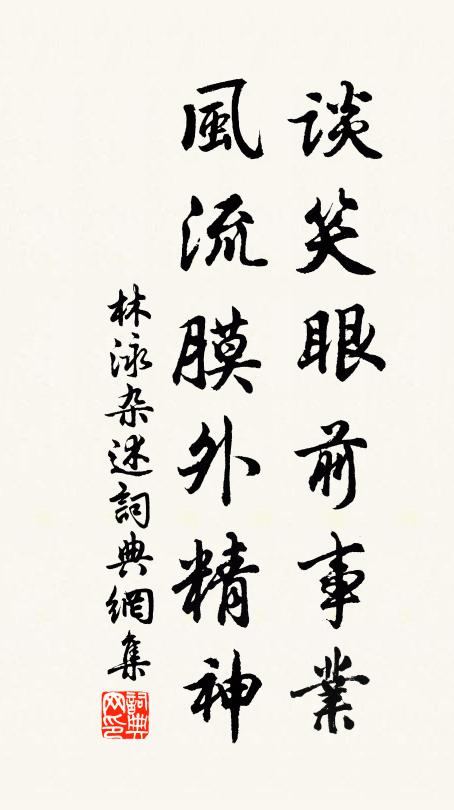 谈笑眼前事業
風流膜外精神
林泳杂述詞典網集
詞典网印